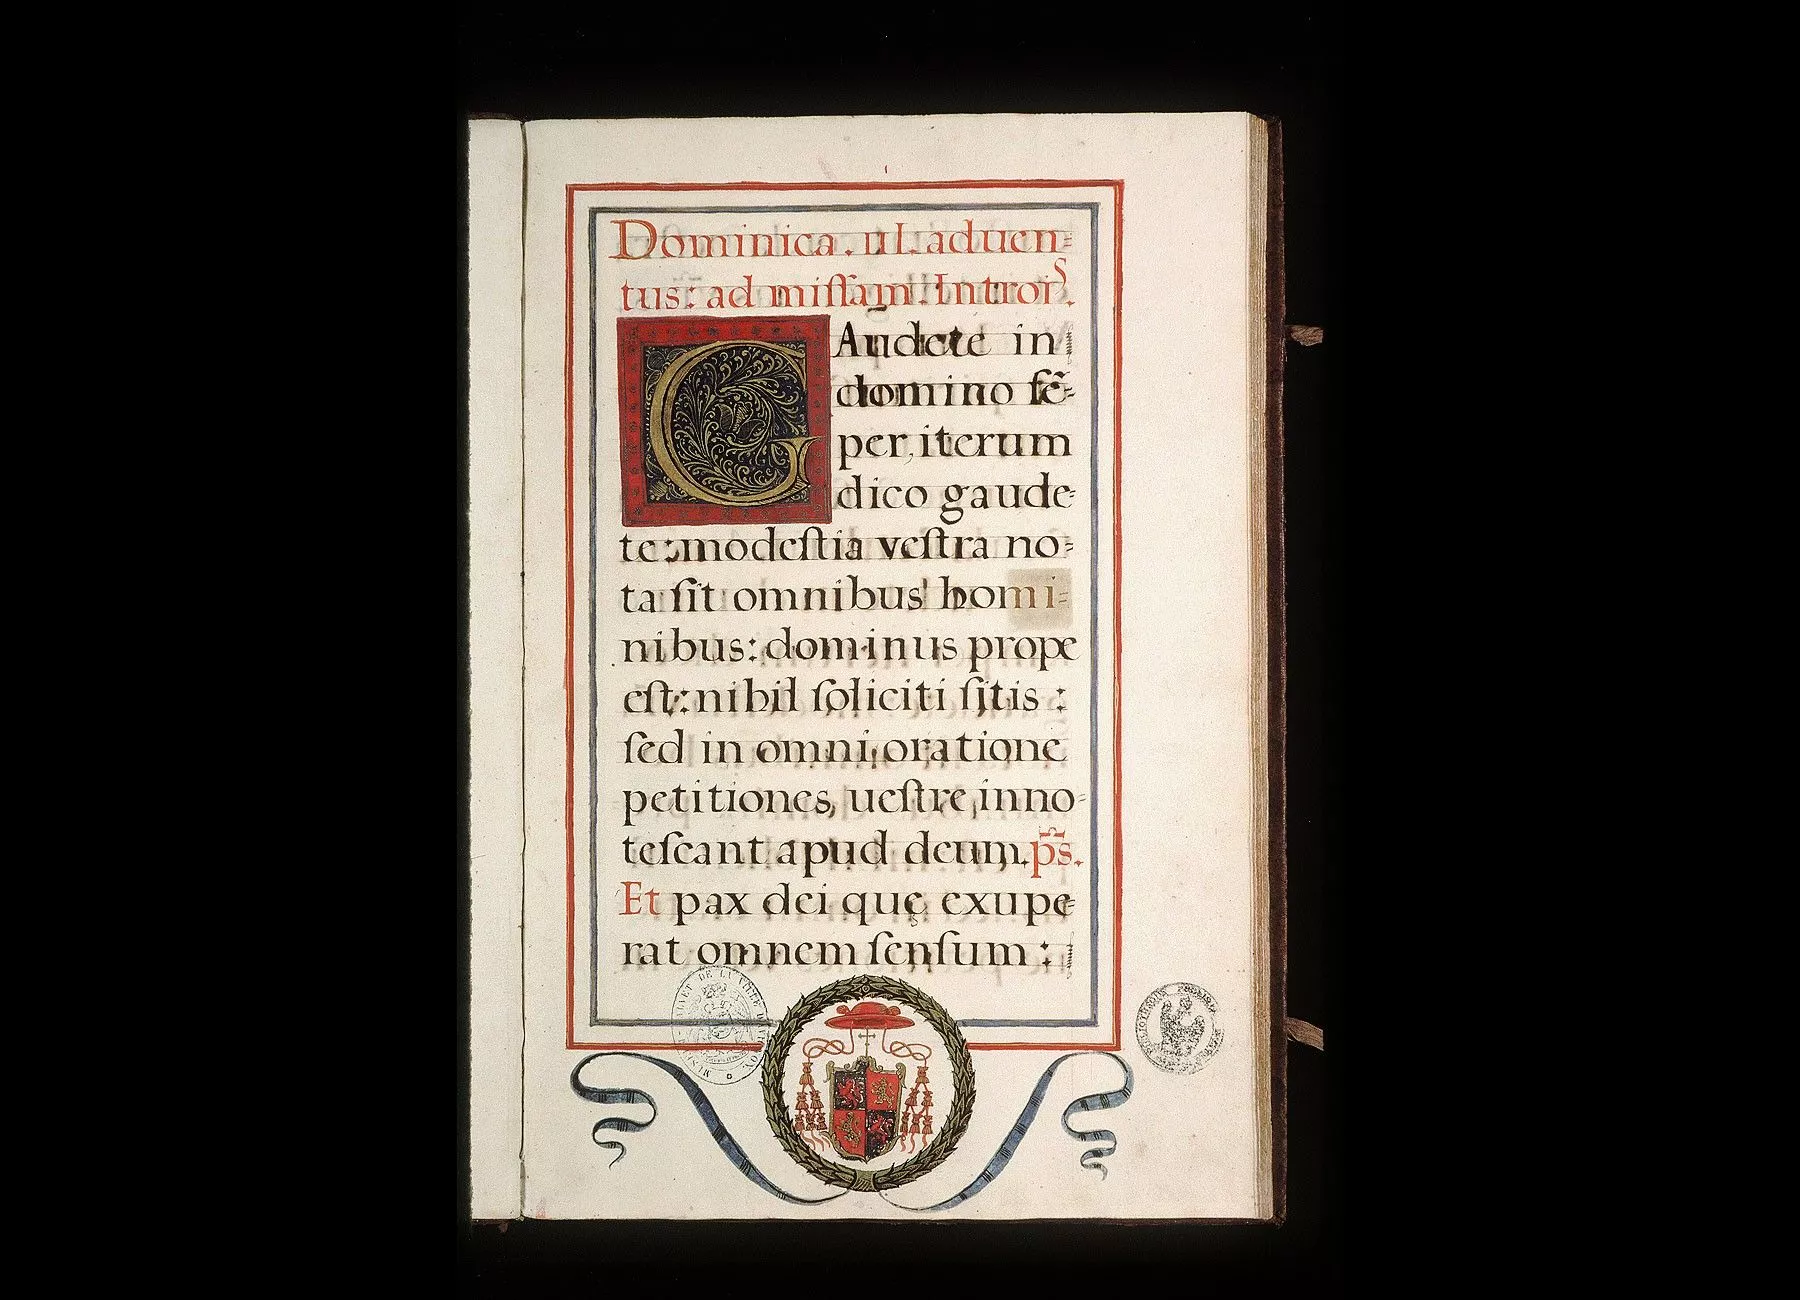 Dominica . iii . aduen=
tus: ad missam. Introi⁹.
GAudete in
domino sē=
per, iterum
dico gaude=
te: modestia vestra no=
ta sit omnibus homi=
nibus: dominus prope
est: nihil soliciti sitis :
sed in omni oratione
petitiones uestre inno=
tescant apud deum. p̄s.
Et pax dei quę exupe=
rat omnem sensum :